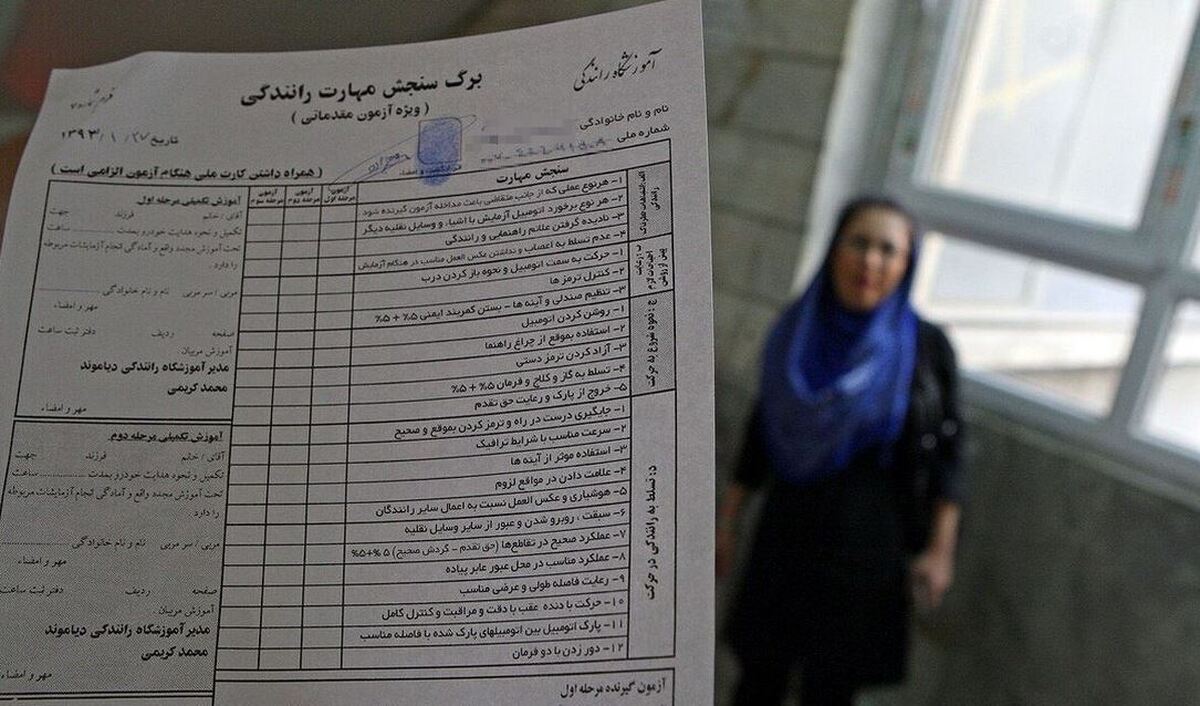 آموزشگاه رانندگی
برگ سنجش مهارت رانندگی
( ویژه آزمون مقدماتی )
تاریخ ۱۳۹۳/۱/۲۷
نام و نام خانوادگی
شماره ملی
( همراه داشتن کارت ملی هنگام آزمون الزامی است )
سنجش مهارت
آزمون مرحله اول
آزمون مرحله دوم
آزمون مرحله سوم
۱- هر نوع عملی که از جانب متقاضی باعث مداخله آزمون گیرنده شود
۲- هر نوع برخورد اتومبیل آزمایش با اشیاء و وسایل نقلیه دیگر
۳- نادیده گرفتن علائم راهنمایی و رانندگی
۴- عدم تسلط به اعصاب و نداشتن عکس العمل مناسب در هنگام آزمایش
۱- حرکت به سمت اتومبیل و نحوه باز کردن درب
۲- کنترل ترمز ها
۳- تنظیم صندلی و آینه ها - بستن کمربند ایمنی ۵% + ۵%
ج : نحوه شروع به حرکت
۱- روشن کردن اتومبیل
۲- استفاده بموقع از چراغ راهنما
۳- آزاد کردن ترمز دستی
۴- تسلط به گاز و کلاج و فرمان ۵% + ۵%
۵- خروج از پارک و رعایت حق تقدم
د : تسلط به رانندگی در حرکت
۱- جایگیری درست در راه و ترمز کردن بموقع و صحیح
۲- سرعت مناسب با شرایط ترافیک
۳- استفاده موثر از آینه ها
۴- علامت دادن در مواقع لزوم
۵- هوشیاری و عکس العمل نسبت به اعمال سایر رانندگان
۶- سبقت ، روبرو شدن و عبور از سایر وسایل نقلیه
۷- عملکرد صحیح در تقاطع‌ها (حق تقدم - گردش صحیح) ۵%+۵%
۸- عملکرد مناسب در محل عبور عابر پیاده
۹- رعایت فاصله طولی و عرضی مناسب
۱۰- حرکت با دنده عقب با دقت و مراقبت و کنترل کامل
۱۱- پارک اتومبیل بین اتومبیلهای پارک شده با فاصله مناسب
۱۲- دور زدن با دو فرمان
آزمون گیرنده مرحله اول
آموزش تکمیلی مرحله اول
آقای / خانم فرزند جهت
تکمیل و نحوه هدایت خودرو بمدت ............ ساعت
تحت آموزش مجدد واقع و آمادگی انجام آزمایشات مربوطه
را دارد .
مربی / سر مربی نام و نام خانوادگی
مهر و امضاء
صفحه ردیف دفتر ثبت ساعت
آموزش مربیان
مدیر آموزشگاه رانندگی دیاموند
محمد کریمی
مهر و امضاء
آموزش تکمیلی مرحله دوم
آقای / خانم فرزند جهت
تکمیل و نحوه هدایت خودرو بمدت ............ ساعت
تحت آموزش مجدد واقع و آمادگی انجام آزمایشات مربوطه
را دارد .
مربی / سر مربی نام و نام خانوادگی
مهر و امضاء
صفحه ردیف دفتر ثبت ساعت
آموزش مربیان
مدیر آموزشگاه رانندگی دیاموند
محمد کریمی
مهر و امضاء